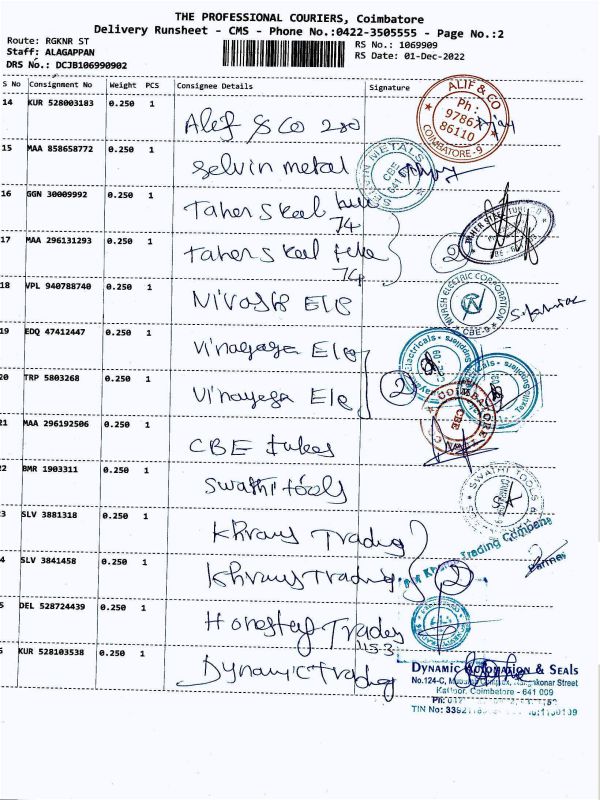 THE PROFESSIONAL COURIERS, Coimbatore
Delivery Runsheet - CMS - Phone No.:0422-3505555 - Page No.:2
Route: RGKNR ST
Staff: ALAGAPPAN
DRS No.: DCJB106990902
RS No.: 1069909
RS Date: 01-Dec-2022
S No Consignment No Weight PCS Consignee Details Signature
14 KUR 528003183 0.250 1 Alif & Co 280
ALIF & CO
Ph : 9786 86110
COIMBATORE - 9
15 MAA 858658772 0.250 1 Selvin metal
SELVIN METALS
CBE
641
16 GGN 30009992 0.250 1 Taher Steel
74
17 MAA 296131293 0.250 1 Taher Steel
74
2
18 VPL 940788740 0.250 1 Nivash Ele
NIVASH ELECTRIC CORPORATION
CBE-9
19 EDQ 47412447 0.250 1 Vinayaga Ele
20 TRP 5803268 0.250 1 Vinayaga Ele
2
Electricals - Suppliers
21 MAA 296192506 0.250 1 CBE tubes
COIMBATORE
CBE
22 BMR 1903311 0.250 1 Swathi tools
SWATHI TOOLS
3 SLV 3881318 0.250 1 Khraus Trading
4 SLV 3841458 0.250 1 Khraus Trading
2
Trading Company
Partner
5 DEL 528724439 0.250 1 Honesty Trades
1153
KUR 528103538 0.250 1 Dynamic Trading
DYNAMIC AUTOMATION & SEALS
No.124-C, Street
Kattoor, Coimbatore - 641 009
Ph:
TIN No: